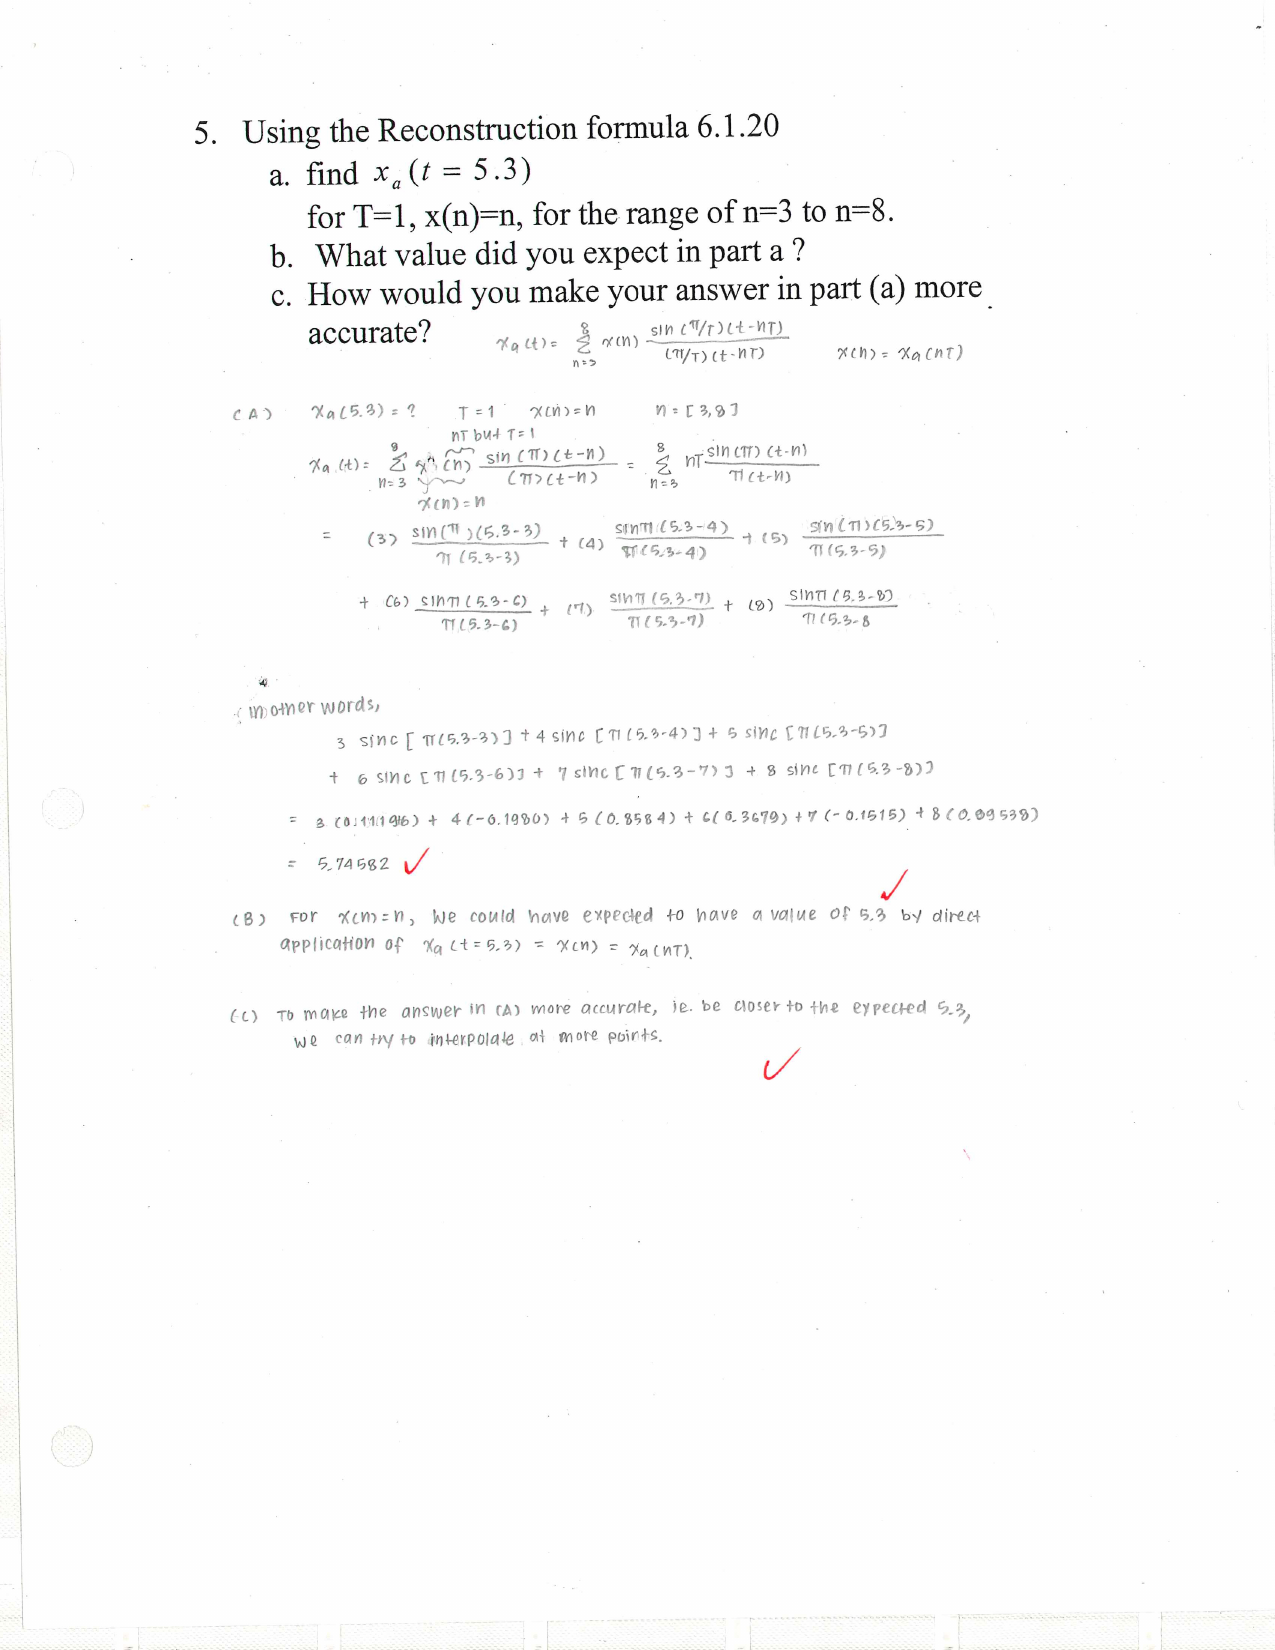 5. Using the Reconstruction formula 6.1.20
a. find x_a (t = 5.3)
for T=1, x(n)=n, for the range of n=3 to n=8.
b. What value did you expect in part a ?
c. How would you make your answer in part (a) more
accurate?
x_a(t) = Σ_{n=3}^{8} x(n) sin(π/T)(t-nT) / (π/T)(t-nT)    x(n) = x_a(nT)
(A) x_a(5.3) = ? T = 1 x(n) = n n = [3,8]
nT but T = 1
x_a(t) = Σ_{n=3}^{8} (n) sin(π)(t-n) / (π)(t-n) = Σ_{n=3}^{8} nT sin(π)(t-n) / π(t-n)
x(n) = n
= (3) sin(π)(5.3-3) / π(5.3-3) + (4) sinπ(5.3-4) / π(5.3-4) + (5) sin(π)(5.3-5) / π(5.3-5)
+ (6) sinπ(5.3-6) / π(5.3-6) + (7) sinπ(5.3-7) / π(5.3-7) + (8) sinπ(5.3-8) / π(5.3-8
in other words,
3 sinc[π(5.3-3)] + 4 sinc[π(5.3-4)] + 5 sinc[π(5.3-5)]
+ 6 sinc[π(5.3-6)] + 7 sinc[π(5.3-7)] + 8 sinc[π(5.3-8)]
= 3(0.11196) + 4(-0.1980) + 5(0.8584) + 6(0.3679) + 7(-0.1515) + 8(0.09538)
= 5.74582 ✓
(B) For x(n) = n, we could have expected to have a value of 5.3 by direct ✓
application of x_a(t = 5.3) = x(n) = x_a(nT).
(C) To make the answer in (A) more accurate, ie. be closer to the expected 5.3,
we can try to interpolate at more points.
✓